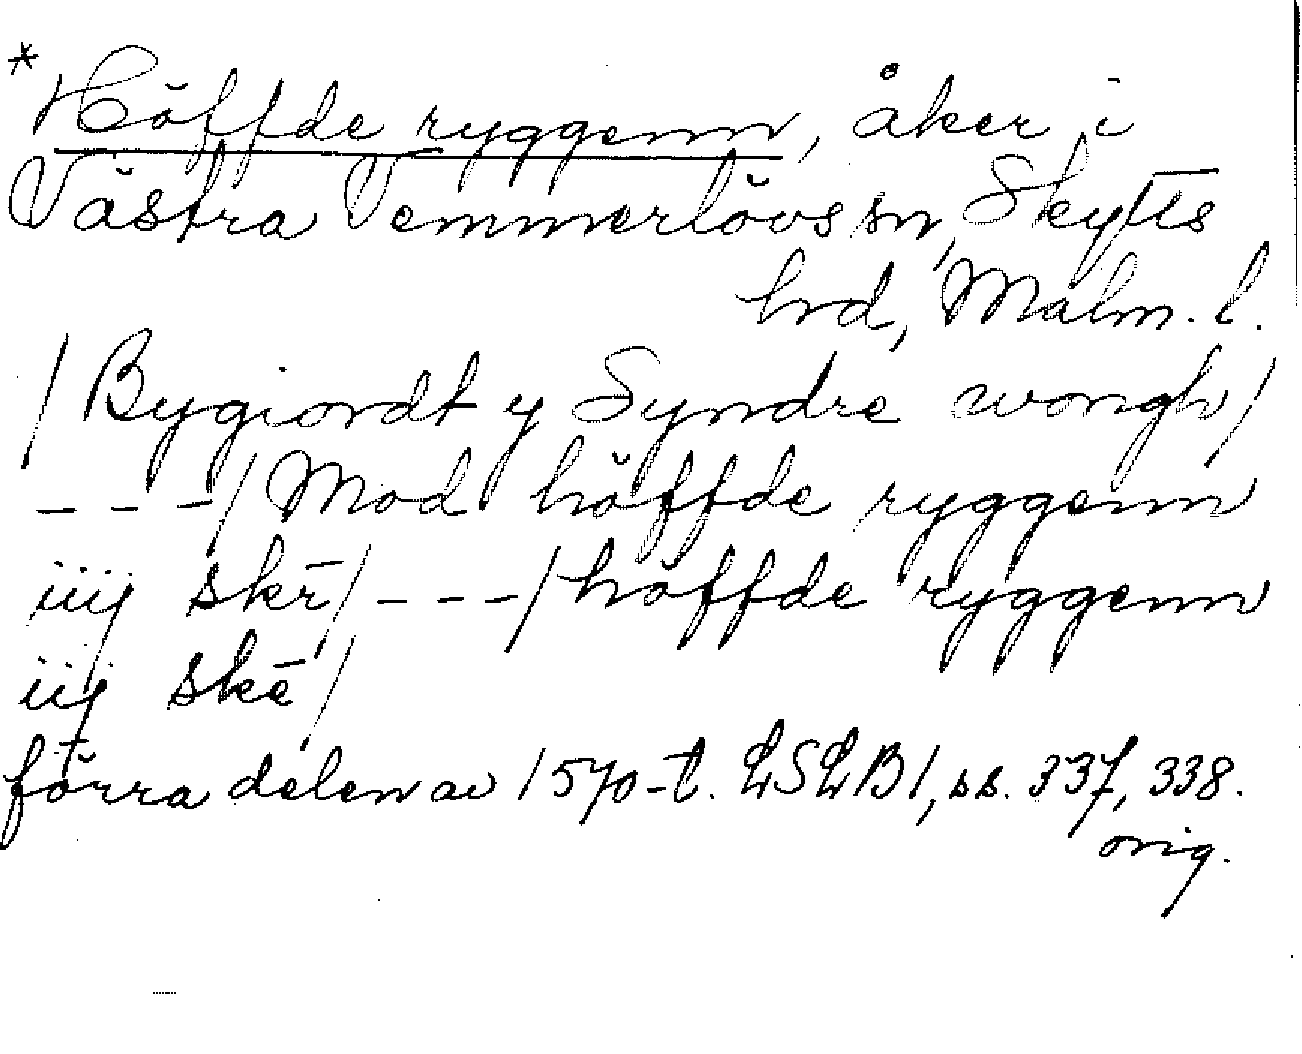 * Höffde ryggenn, åker i
Västra Vemmerlövs sn, Skytts
hrd, Malm. l.
/ Bygiordt y Syndre wongh /
- - - / Mod höffde ryggenn
iiij skr̄ / - - - / höffde ryggenn
iij skē /
förra delen av 1570-t. LSLB 1, ss. 337, 338.
orig.